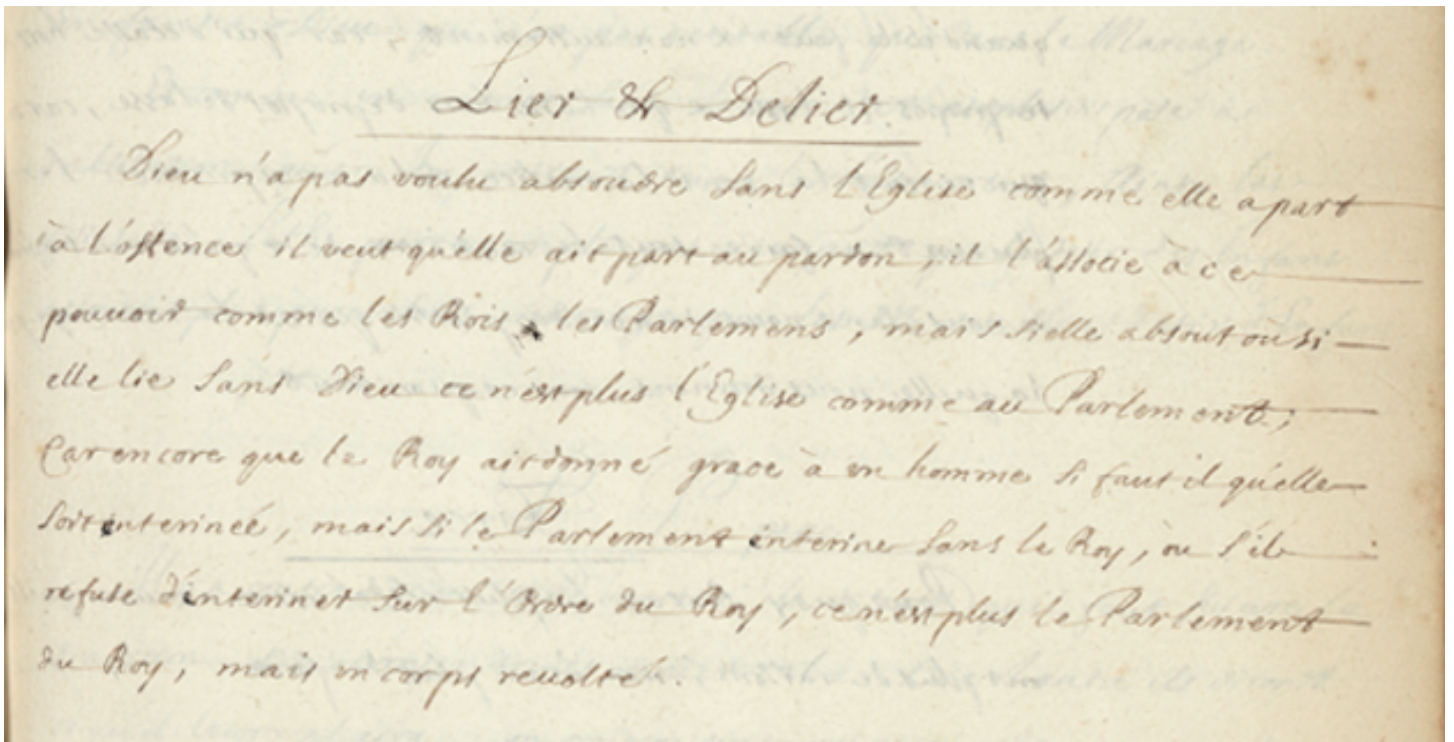 Lier & Delier.
Dieu n'a pas voulu absoudre sans l'Eglise comme elle a part
à l'offence il veut qu'elle ait part au pardon, il l'associe à ce
pouvoir comme les Rois les Parlemens, mais si elle absout ou si
elle lie sans Dieu ce n'est plus l'Eglise comme au Parlement;
Car encore que le Roy ait donné grace à un homme si faut il qu'elle
soit enterineé, mais si le Parlement enterine sans le Roy, ou s'il
refuse d'enteriner sur l'Ordre du Roy, ce n'est plus le Parlement
du Roy, mais un corps revolté.